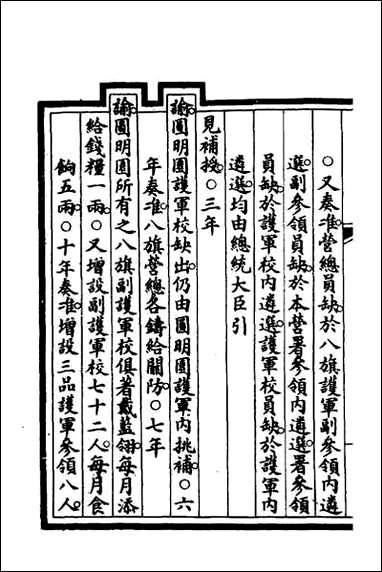 ○又奏准營總員缺於八旗護軍副參領內遴
選副參領員缺於本營署參領內遴選署參領
員缺於護軍校內遴選護軍校員缺於護軍內
遴選均由總統大臣引
見補授○三年
諭圓明園護軍校缺出仍由圓明園護軍內挑補○六
年奏准八旗營總各鑄給關防○七年
諭圓明園所有之八旗副護軍校俱著戴藍翎每月添
給錢糧一兩○又增設副護軍校七十二人每月食
餉五兩○十年奏准增設三品護軍參領八人